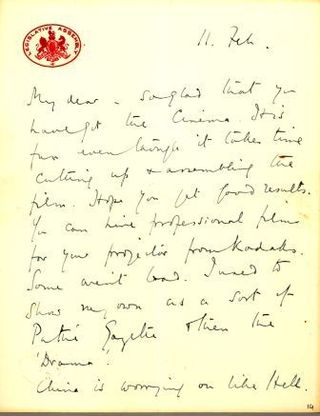 LEGISLATIVE ASSEMBLY
11. Feb.
My dear - so glad that you
have got the Cinema. It is
fun even though it takes time
cutting up & assembling the
film. Hope you get good results.
You can hire professional films
for your projector from Kodaks.
Some aren't bad. I used to
show my own as a sort of
Pathé Gazette & then the
'Drama'.
China is worrying on like Hell.
14